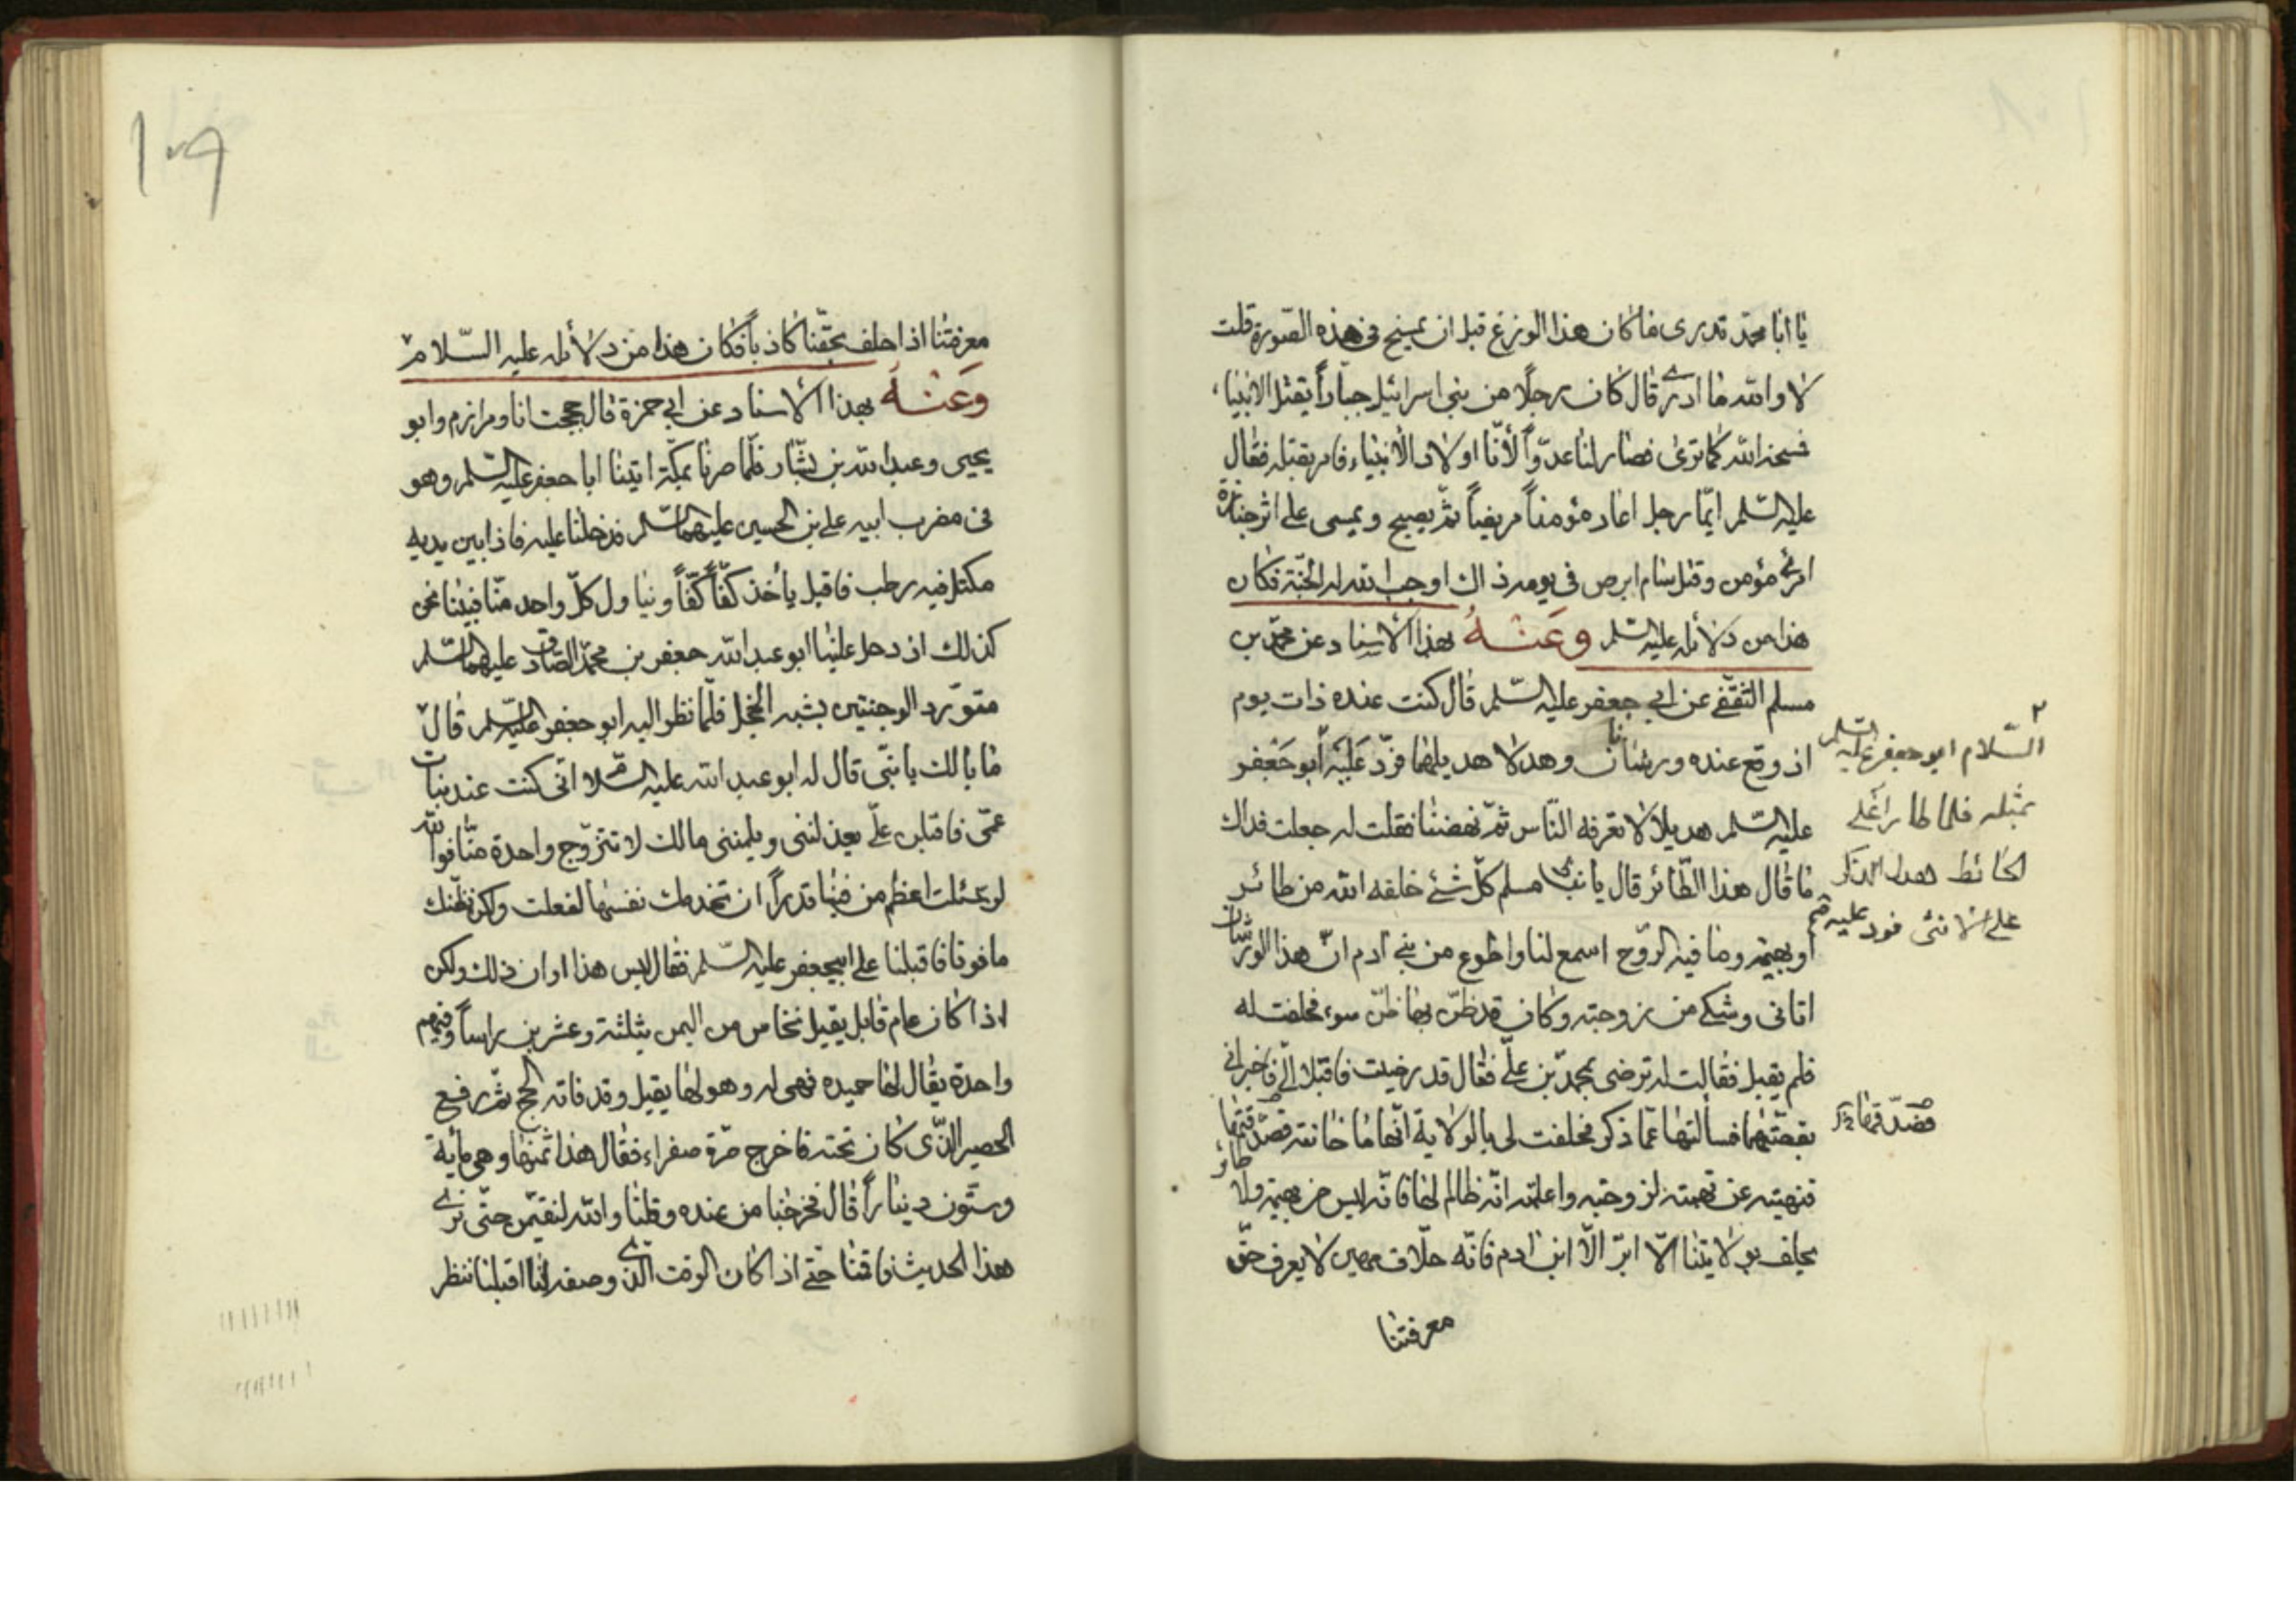 يا ابا محمد تدرى ما كان هذا الوزغ قبل ان يمسخ فى هذه الصورة قلت
لا والله ما ادرى قال كان رجلا من بنى اسرائيل جبارا يقتل الانبياء
فسخه الله كما ترى فصار لنا عدوا لانا اولاد الانبياء فامر بقتله فقال
عليه السلم ايما رجل اعاد مؤمنا مريضا ثم يصبح ويمسى على اثر جنازة
امرئ مؤمن وقتل سام ابرص فى يومه ذاك اوجب الله له الجنة فكان
هذا من دلائله عليه السلم وعنه بهذا الاسناد عن محمد بن
مسلم الثقفى عن ابى جعفر عليه السلم قال كنت عنده ذات يوم
اذ وقع عنده ورشانان وهدلا هديلهما فرد عليه ابو جعفر
عليه السلم هديلا لا تعرفه الناس ثم نهضنا فقلت له جعلت فداك
ما قال هذا الطائر قال يا بن مسلم كل شئ خلقه الله من طائر
او بهيمة وما فيه الروح اسمع لنا واطوع من بنى ادم ان هذا الورشان
اتانى وشكى من زوجته وكان قد ظن بها ظن سوء فحلفت له
فلم يقبل فقالت له ترضى بمحمد بن على فقال قد رضيت فاقبلا الى فاخبرانى
بقصتهما فسالتها عما ذكر فحلفت لى بالولاية انها ما خانته فصدقتها
فنهيته عن تهمته لزوجته واعلمته انه ظالم لها فانه ليس من بهيمة ولا طائر
يحلف بولايتنا الا ابر الا ابن ادم فانه حلاف مهين لا يعرف حق
معرفتنا
٢
السلام ابو جعفر عليه السلم
بمثله فلما طارا على
الحائط هدل الذكر
على الانثى فرد عليه
فصدقتها
١٠٩
معرفتنا اذا حلف بحقنا كاذبا فكان هذا من دلائله عليه السلام
وعنه بهذا الاسناد عن ابى حمزة قال حججت انا ومرازم وابو
يحيى وعبد الله بن بشار فلما صرنا بمكة اتينا ابا جعفر عليه السلم وهو
فى مضرب ابيه على بن الحسين عليهما السلم فدخلنا عليه فاذا بين يديه
مكتل فيه رطب فاقبل ياخذ كفا كفا ويناول كل واحد منا فبينا نحن
كذلك اذ دخل علينا ابو عبد الله جعفر بن محمد الصادق عليهما السلم
متورد الوجنتين بشبه الخجل فلما نظر اليه ابو جعفر عليه السلم قال
ما بالك يا بنى قال له ابو عبد الله عليه السلام انى كنت عند بنات
عمى فاقبلن على يعذلننى ويلمننى مالك لا تتزوج واحدة منا فوالله
لو سئلت اعظم من فينا قدرا ان تخدمك نفسها لفعلت ولكن نظنك
ما فوقا فاقبلنا على ابى جعفر عليه السلم فقال ليس هذا اوان ذلك ولكن
اذا كان عام قابل يقبل نخاس من اليمن بثلثة وعشرين راسا وفيهم
واحدة يقال لها حميده فهى له وهو لها يقبل وقد فاته الحج ثم رفع
الحصير الذى كان تحته فاخرج صرة صفراء فقال هذا ثمنها وهى مأية
وستون دينارا قال فخرجنا من عنده وقلنا والله لنقيمن حتى نرى
هذا الحديث فاقمنا حتى اذا كان الوقت الذى وصفه لنا اقبلنا ننظر